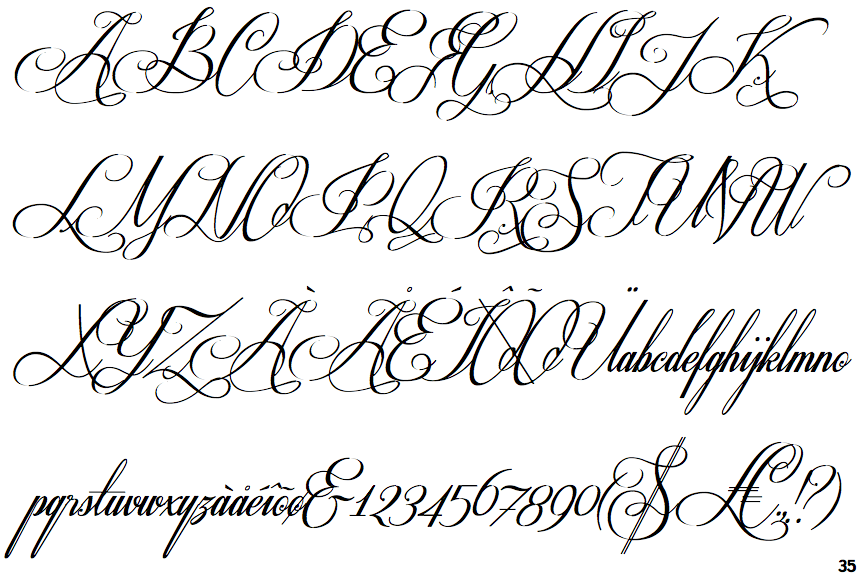 ABCDEFGHIJK
LMNOPQRSTUVW
XYZÀÅÉÎÕØÜabcdefghijklmno
pqrstuvwxyzàåéîõøE-1234567890($£€.,!?)
35